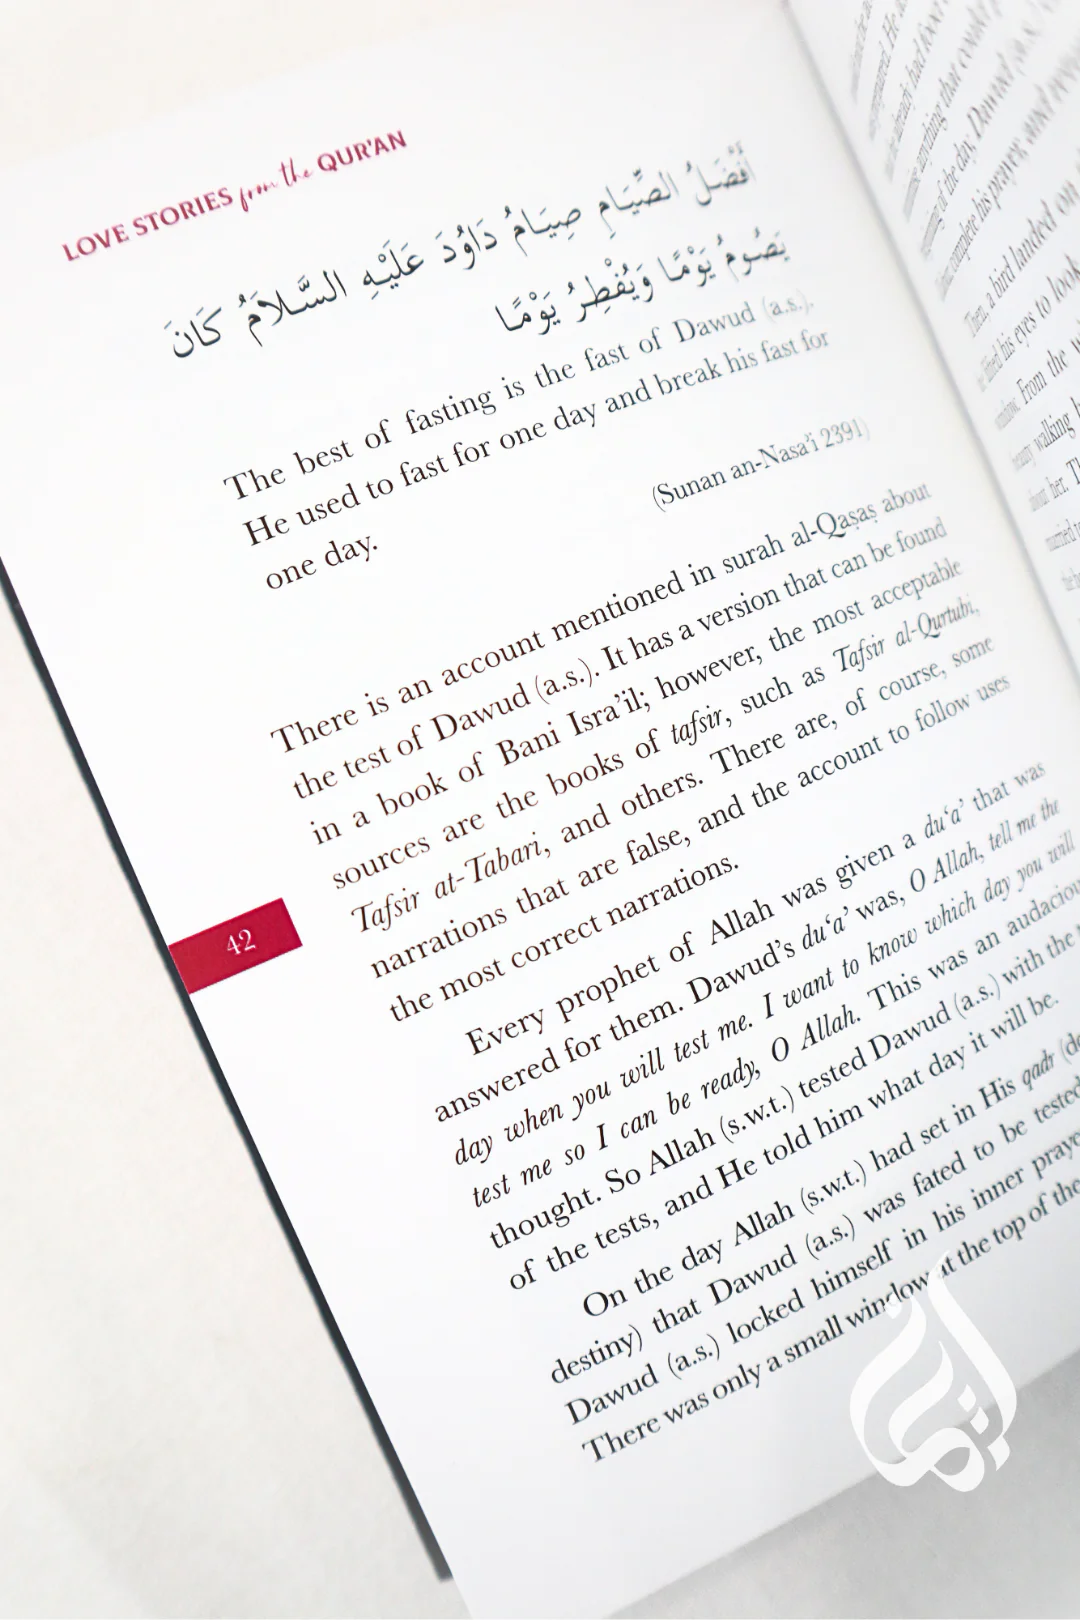 LOVE STORIES from the QUR'AN
أَفْضَلُ الصِّيَامِ صِيَامُ دَاوُدَ عَلَيْهِ السَّلَامُ كَانَ
يَصُومُ يَوْمًا وَيُفْطِرُ يَوْمًا
The best of fasting is the fast of Dawud (a.s.).
He used to fast for one day and break his fast for
one day.
(Sunan an-Nasa'i 2391)
There is an account mentioned in surah al-Qaṣaṣ about
the test of Dawud (a.s.). It has a version that can be found
in a book of Bani Isra'il; however, the most acceptable
sources are the books of tafsir, such as Tafsir al-Qurtubi,
Tafsir at-Tabari, and others. There are, of course, some
narrations that are false, and the account to follow uses
the most correct narrations.
Every prophet of Allah was given a du‘a’ that was
answered for them. Dawud's du‘a’ was, O Allah, tell me the
day when you will test me. I want to know which day you will
test me so I can be ready, O Allah. This was an audaciou
thought. So Allah (s.w.t.) tested Dawud (a.s.) with the
of the tests, and He told him what day it will be.
On the day Allah (s.w.t.) had set in His qadr (de
destiny) that Dawud (a.s.) was fated to be tested
Dawud (a.s.) locked himself in his inner praye
There was only a small window at the top of the
42
anything that could
of the day, Dawud (a.s.)
complete his prayer, and
Then, a bird landed on
his eyes to look
From the
walking
about her.
married